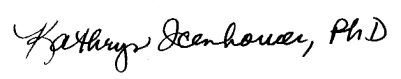 Kathryn Icenhower, PhD